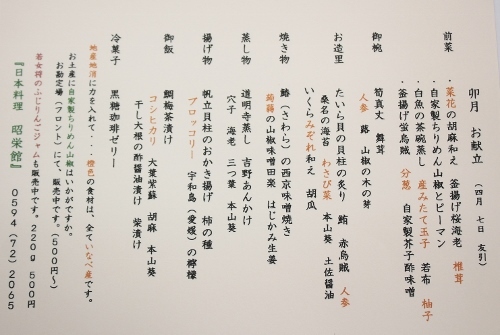 卯月 お献立 (四月 七日 友引)
前菜 ・菜花の胡麻和え 釜揚げ桜海老 椎茸
・自家製ちりめん山椒とピーマン
・白魚の茶碗蒸し 産みたて玉子 若布 柚子
・釜揚げ蛍烏賊 分葱 自家製芥子酢味噌
御椀 筍真丈 舞茸
人参 蕗 山椒の木の芽
お造里 たいら貝の貝柱の炙り 鮪 赤烏賊 人参
桑名の海苔 わさび菜 本山葵 土佐醤油
いくらみぞれ和え 胡瓜
焼き物 鰆(さわら)の西京味噌焼き
蒟蒻の山椒味噌田楽 はじかみ生姜
蒸し物 道明寺蒸し 吉野あんかけ
穴子 海老 三つ葉 本山葵
揚げ物 帆立貝柱のおかき揚げ 柿の種
ブロッコリー 宇和島(愛媛)の檸檬
御飯 鯛梅茶漬け
コシヒカリ 大葉紫蘇 胡麻 本山葵
干し大根の酢醤油漬け 柴漬け
冷菓子 黒糖珈琲ゼリー
地産地消に力を入れて・・・橙色の食材は、全ていなべ産です。
お土産に自家製ちりめん山椒はいかがですか。
お勘定場(フロント)にて、販売中です。(500円〜)
若女将のふじりんごジャムも販売中です。220g 500円
『日本料理 昭栄館』 0594(72)2065